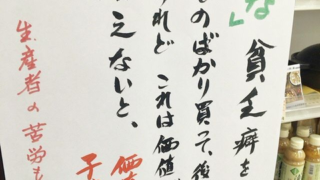 な」
貧乏癖を
ものばかり買って、後
けれど これは価値
えないと、
価
子
生産者の苦労も